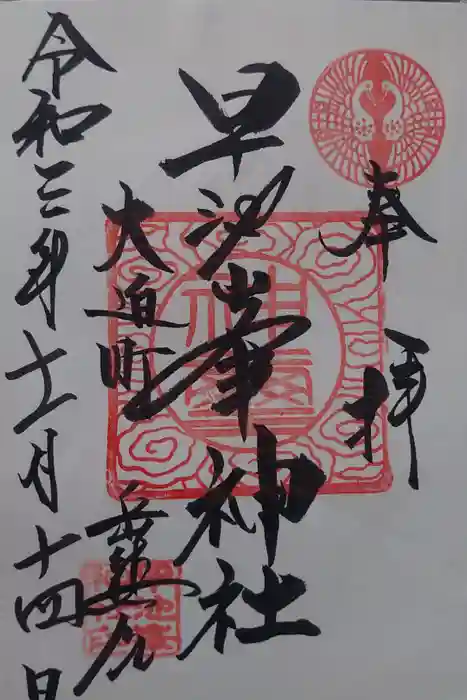 奉拝
早池峯神社
大迫町
令和三年十一月十四日